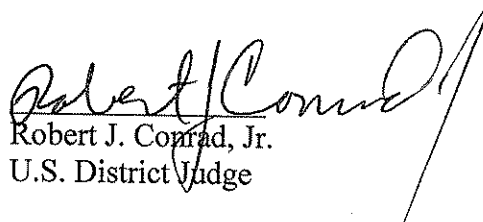 Robert J Conrad
Robert J. Conrad, Jr.
U.S. District Judge